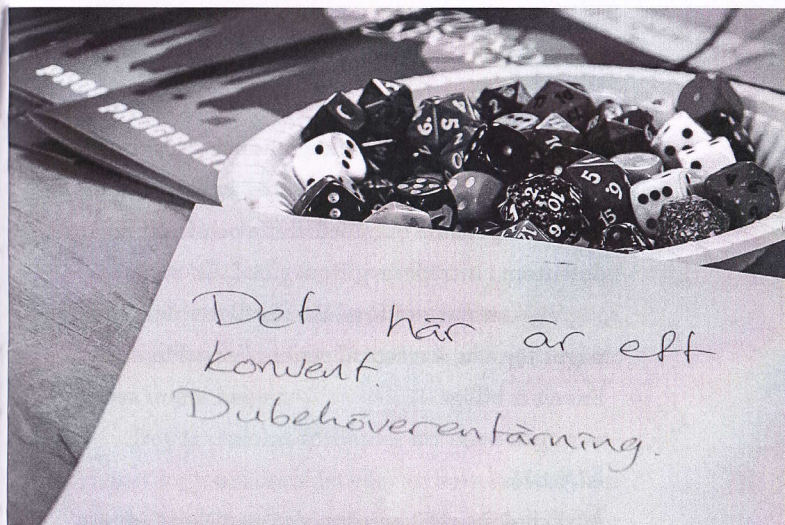 PROGRAM
Det här är ett
konvent.
Dubehöverentärning.